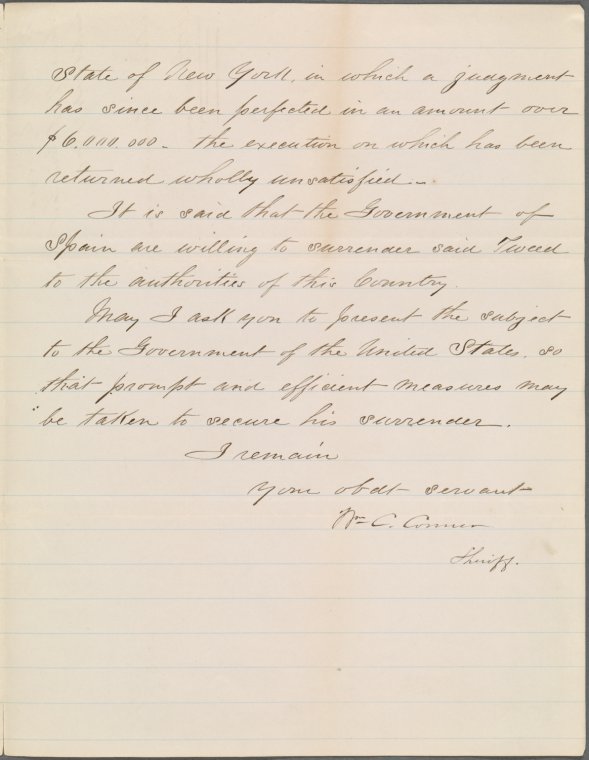 State of New York, in which a judgment
has since been perfected in an amount over
$6.000.000 - the execution on which has been
returned wholly unsatisfied -
It is said that the Government of
Spain are willing to surrender said Tweed
to the authorities of this Country.
May I ask you to present the subject
to the Government of the United States, so
that prompt and efficient measures may
be taken to secure his surrender.
I remain
your obdt servant
Wm C. Conner
Sheriff.